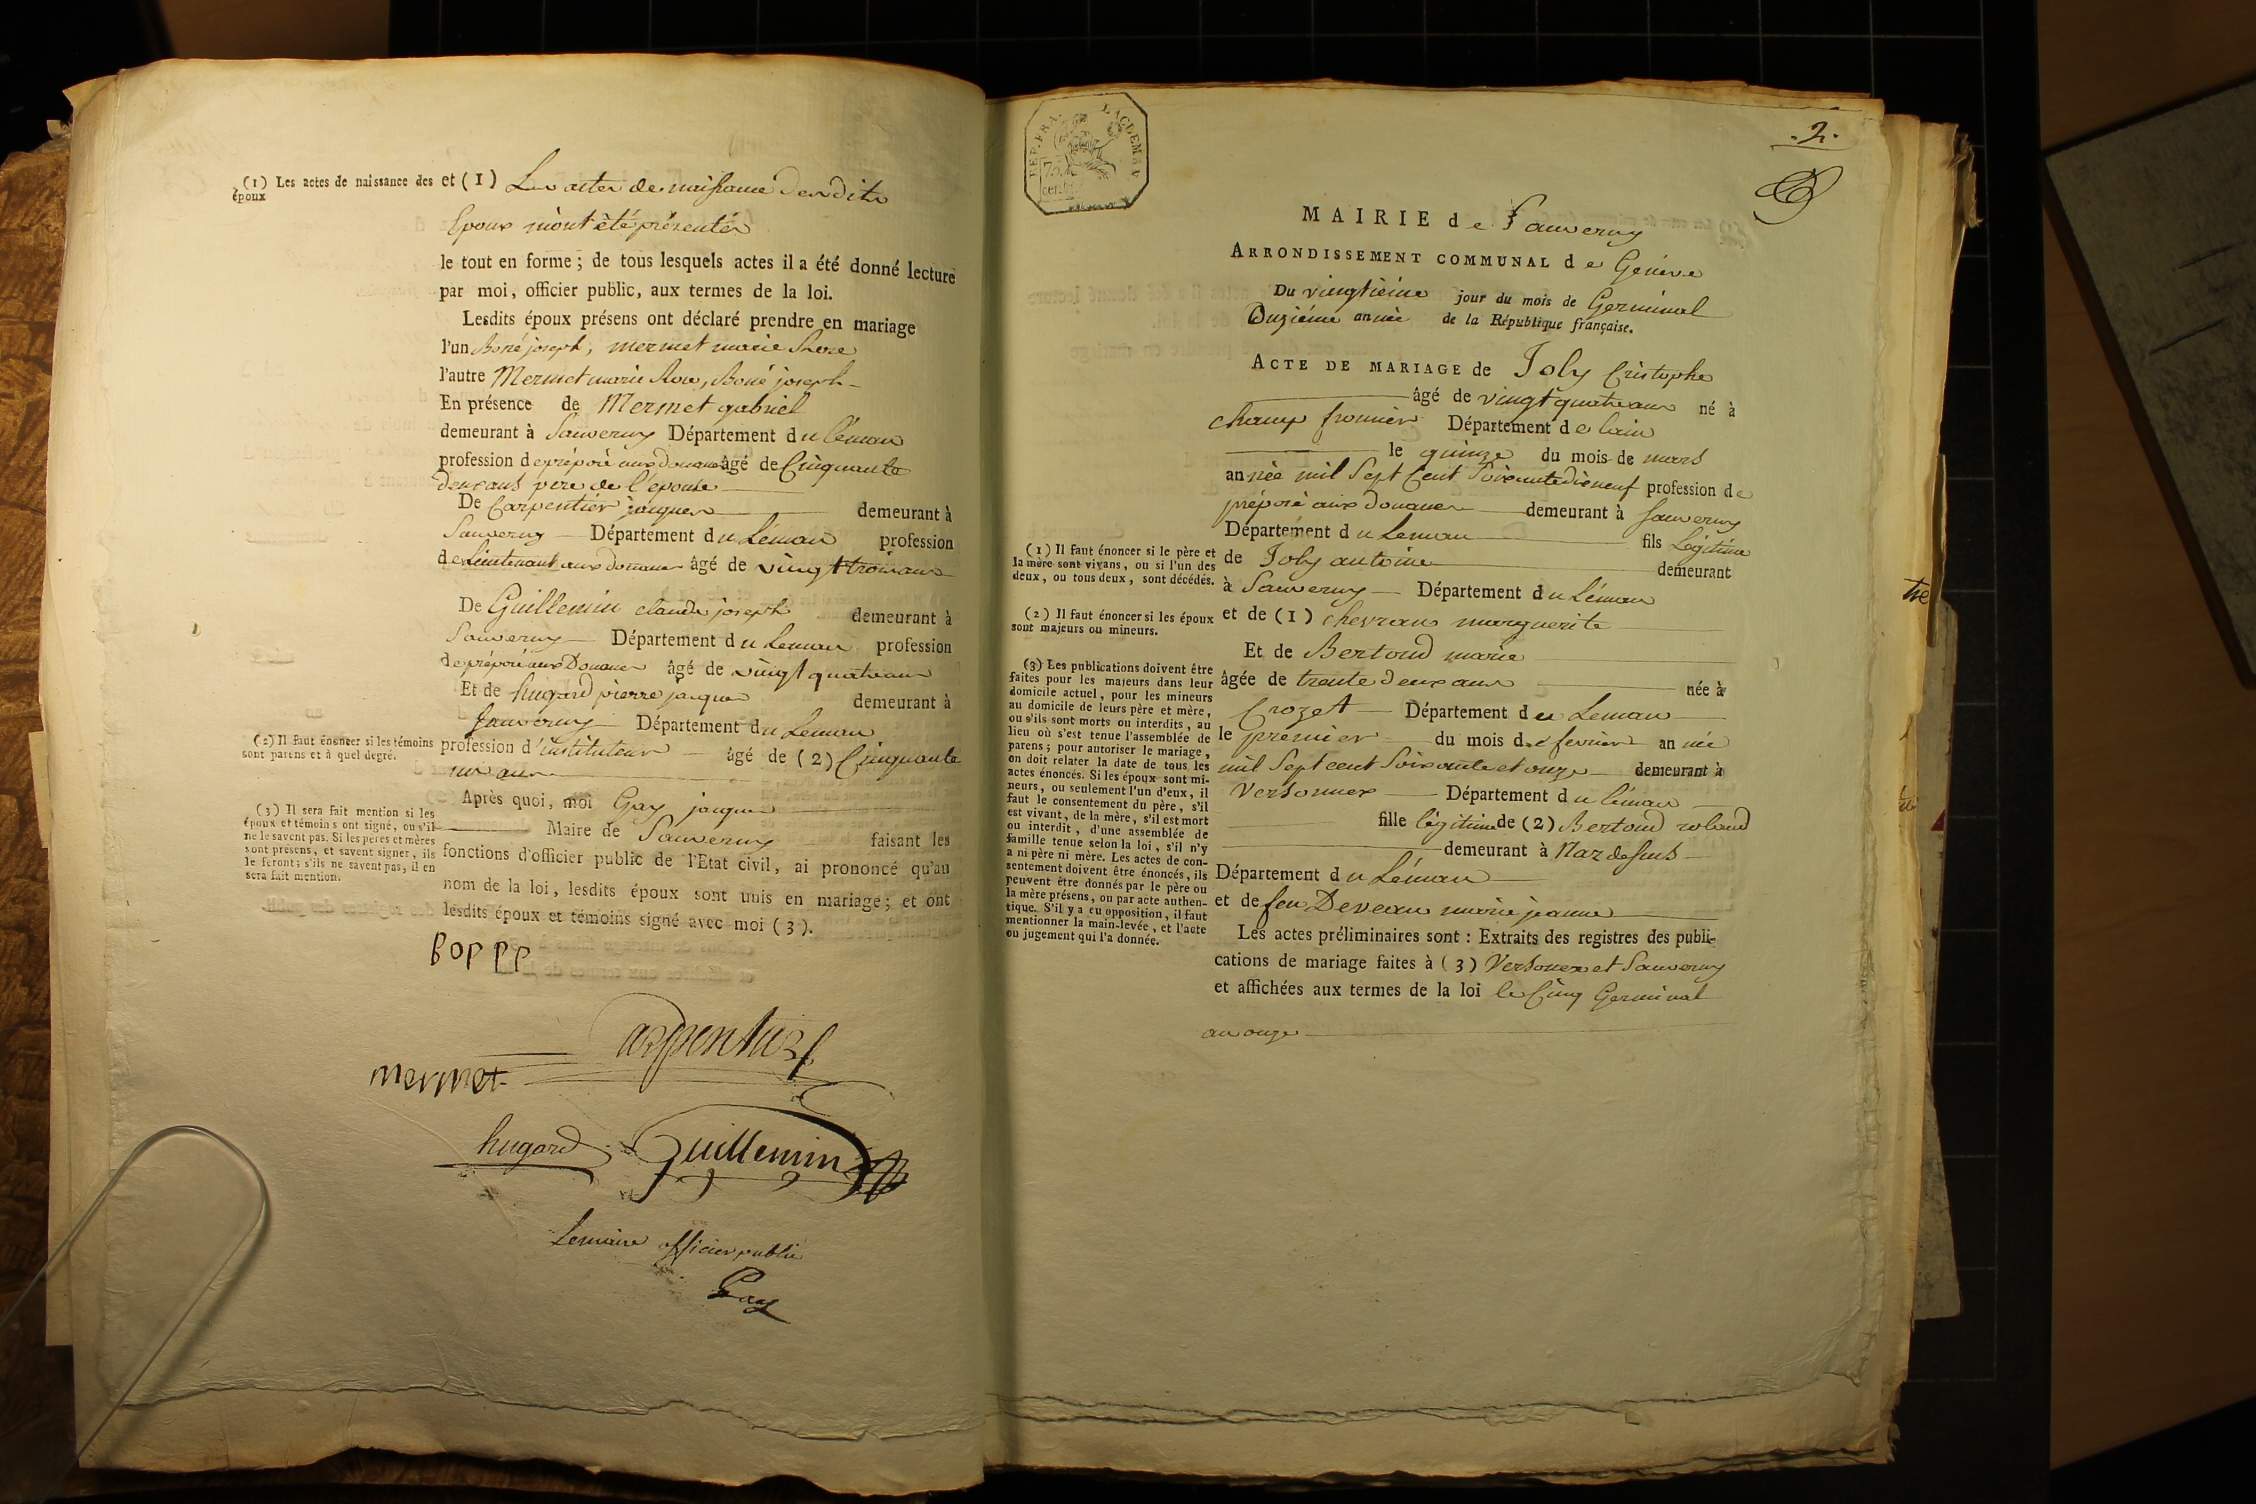 (1) Les actes de naissance des
époux
et (1) Les actes de naissance desdits
Epoux m'ont été présentés
le tout en forme ; de tous lesquels actes il a été donné lecture
par moi, officier public, aux termes de la loi.
Lesdits époux présens ont déclaré prendre en mariage
l'un Boné joseph, mermet marie
l'autre Mermet marie, Boné joseph
En présence de Mermet gabriel
demeurant à Sauverny Département du léman
profession de préposé aux douanes âgé de Cinquante
deux ans pere de l'epouse
De Carpentier jacques demeurant à
Sauverny Département du Léman profession
de Lieutenant aux douanes âgé de vingt trois ans
De Guillemin claude joseph demeurant à
Sauverny Département du Leman profession
de préposé aux Douanes âgé de vingt quatre ans
Et de hugard pierre jacques demeurant à
Sauverny Département du Leman
(2) Il faut énoncer si les témoins
sont parens et à quel degré.
profession d'instituteur âgé de (2) Cinquante
ans
Après quoi, moi Gay jacques
(3) Il sera fait mention si les
époux et témoins ont signé, ou s'il
ne le savent pas. Si les pères et mères
sont présens, et savent signer, ils
le feront ; s'ils ne savent pas, il en
sera fait mention.
Maire de Sauverny faisant les
fonctions d'officier public de l'Etat civil, ai prononcé qu'au
nom de la loi, lesdits époux sont unis en mariage ; et ont
lesdits époux et témoins signé avec moi (3).
Carpentier
mermet
hugard Guillemin
Lemaire officier public
Gay
REP. FRA.
75
cent
.2.
MAIRIE de Sauverny
ARRONDISSEMENT COMMUNAL de Genève
Du vingtième jour du mois de Germinal
Onzième année de la République française.
ACTE DE MARIAGE de Joly Cristophe
âgé de vingt quatre ans né à
champ fromier Département de lain
le quinze du mois de mars
année mil Sept Cent Soixante dix neuf profession de
préposé aux douanes demeurant à Sauverny
Département du Leman fils Légitime
de Joly antoine demeurant
à Sauverny Département du Léman
et de (1) chevran marguerite
Et de Bertoud marie
âgée de trente deux ans née à
Crozet Département du Leman
le premier du mois de fevrier année
mil Sept cent Soixante et onze demeurant à
Versonnex Département du léman
fille légitime de (2) Bertoud roland
demeurant à Naz dessus
Département du Léman
et de feu Deveau marie jeanne
Les actes préliminaires sont : Extraits des registres des publi-
cations de mariage faites à (3) Versonnex et Sauverny
et affichées aux termes de la loi le Cinq Germinal
an onze
(1) Il faut énoncer si le père et
la mère sont vivans, ou si l'un des
deux, ou tous deux, sont décédés.
(2) Il faut énoncer si les époux
sont majeurs ou mineurs.
(3) Les publications doivent être
faites pour les majeurs dans leur
domicile actuel, pour les mineurs
au domicile de leurs père et mère,
ou s'ils sont morts ou interdits, au
lieu où s'est tenue l'assemblée de
parens ; pour autoriser le mariage,
on doit relater la date de tous les
actes énoncés. Si les époux sont mi-
neurs, ou seulement l'un d'eux, il
faut le consentement du père, s'il
est vivant, de la mère, s'il est mort
ou interdit, d'une assemblée de
famille tenue selon la loi, s'il n'y
a ni père ni mère. Les actes de con-
sentement doivent être énoncés, ils
peuvent être donnés par le père ou
la mère présens, ou par acte authen-
tique. S'il y a eu opposition, il faut
mentionner la main-levée, et l'acte
ou jugement qui l'a donnée.